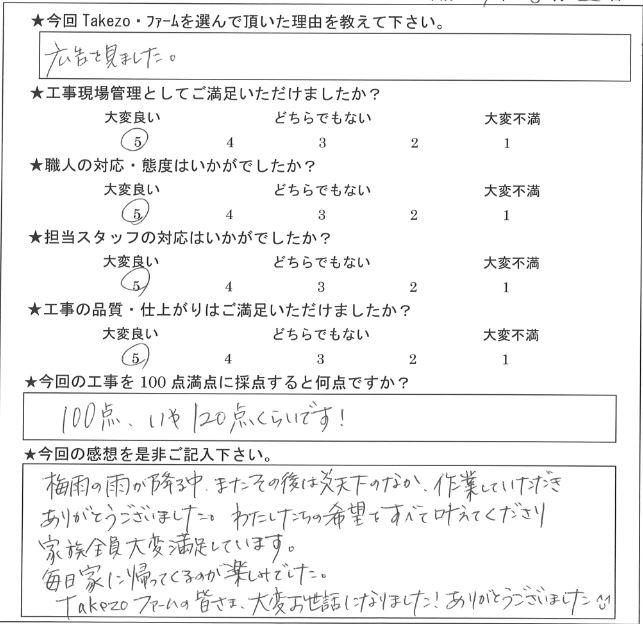 ★今回 Takezo・ファームを選んで頂いた理由を教えて下さい。
広告を見ました。
★工事現場管理としてご満足いただけましたか？
大変良い どちらでもない 大変不満
5 4 3 2 1
★職人の対応・態度はいかがでしたか？
大変良い どちらでもない 大変不満
5 4 3 2 1
★担当スタッフの対応はいかがでしたか？
大変良い どちらでもない 大変不満
5 4 3 2 1
★工事の品質・仕上がりはご満足いただけましたか？
大変良い どちらでもない 大変不満
5 4 3 2 1
★今回の工事を 100 点満点に採点すると何点ですか？
100点、いや120点くらいです!
★今回の感想を是非ご記入下さい。
梅雨の雨が降る中、またその後は炎天下のなか、作業していただき
ありがとうございました。わたしたちの希望をすべて叶えてくださり
家族全員大変満足しています。
毎日家に帰ってくるのが楽しみでした。
Takezo ファームの皆さま、大変お世話になりました!ありがとうございました